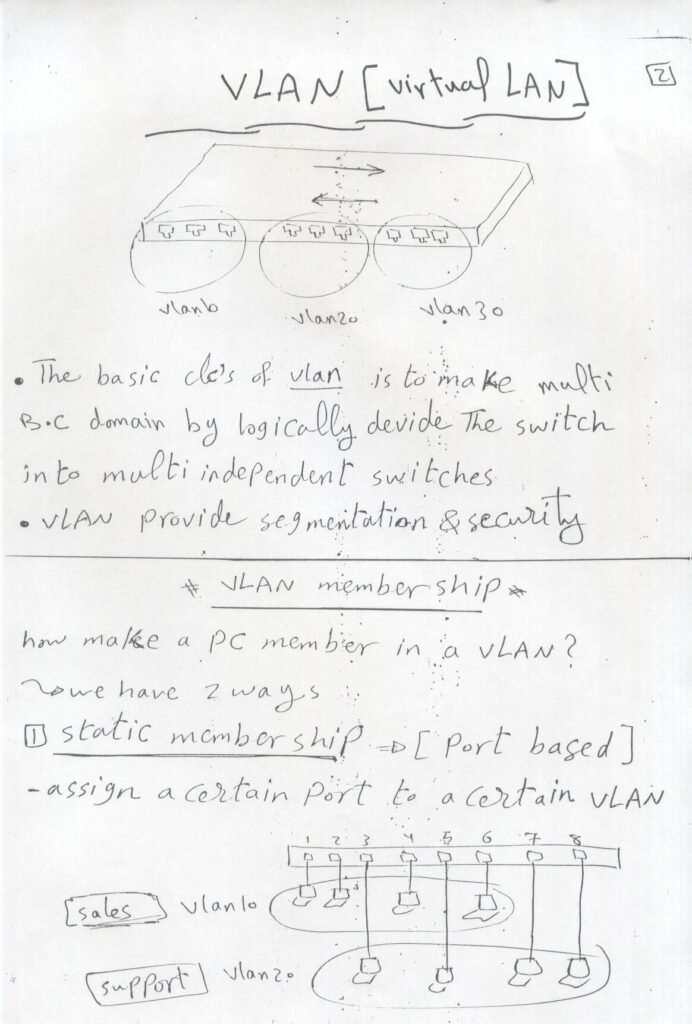 VLAN [virtual LAN]
2
vlan10
vlan20
vlan30
• The basic of vlan is to make multi
B.C domain by logically devide The switch
into multi independent switches
• VLAN provide segmentation & security
* VLAN membership *
how make a PC member in a VLAN?
→ we have 2 ways
1 static membership ⇒ [Port based]
- assign a certain Port to a certain VLAN
1 2 3 4 5 6 7 8
sales vlan10
support vlan20